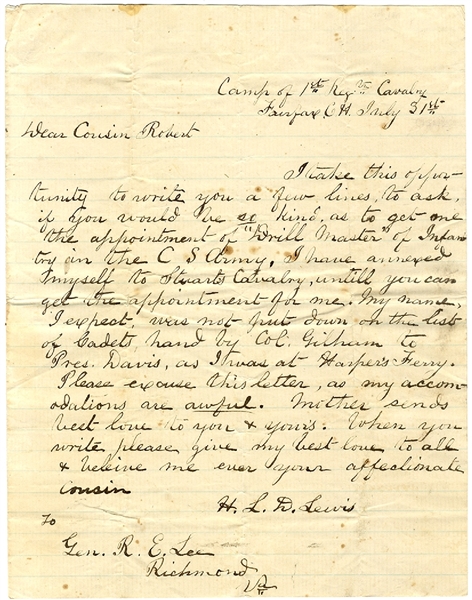 Camp of 1st Regt Va Cavalry
Fairfax C.H. July 31st
Dear Cousin Robert
I take this oppor-
tunity to write you a few lines, to ask,
if you would be so kind, as to get me
the appointment of "Drill Master" of Infan-
try in the C S Army, I have annexed
myself to Stuarts Cavalry, untill you can
get the appointment for me. My name,
I expect, was not put down on the list
of Cadets, hand by Col. Gilham to
Pres. Davis, as I was at Harper's Ferry.
Please excuse this letter, as my accom-
odations are awful. Mother sends
best love to you & yours. When you
write please give my best love to all
& beleive me ever your affectionate
cousin
H. L. D. Lewis
To
Gen. R. E. Lee
Richmond
Va